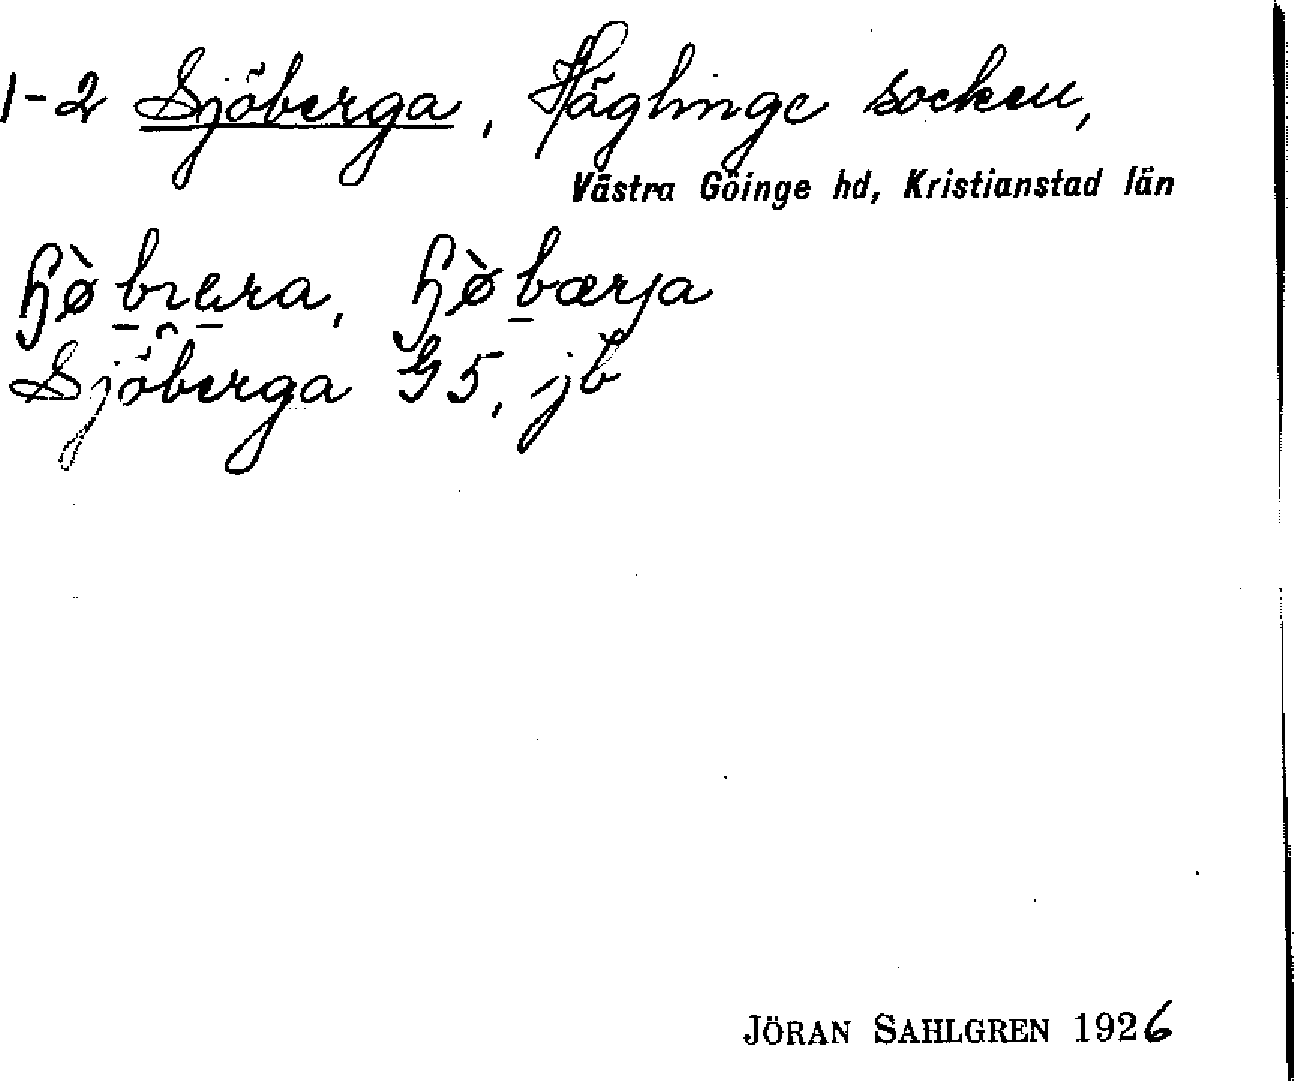 1-2 Sjöberga, Häglinge socken,
Västra Göinge hd, Kristianstad län
Sjöberga G5, jb
JÖRAN SAHLGREN 1926